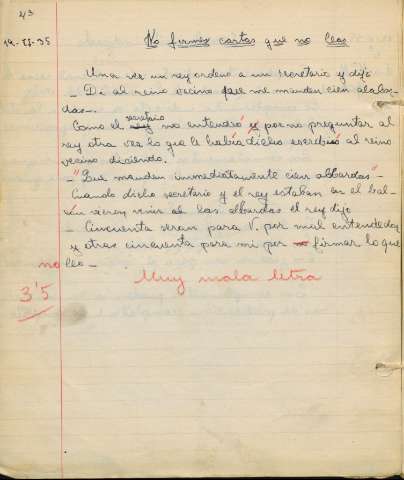 43
19-II-35
No firmes cartas que no leas
Una vez un rey ordeno a un secretario y dijo
- Di al reino vecino que me manden cien alabar-
das-.
secretario
Como el rey no entendió y por no preguntar al
rey otra vez lo que le había dicho escribió al reino
vecino diciendo.
-"Que manden inmediatamente cien albardas"-
Cuando dicho secretario y el rey estaban en el bal-
cón vieron venir a las albardas el rey dijo
- Cincuenta seran para V. por mal entendedor
y otras cincuenta para mi por no firmar lo que
no leo-
3'5
Muy mala letra